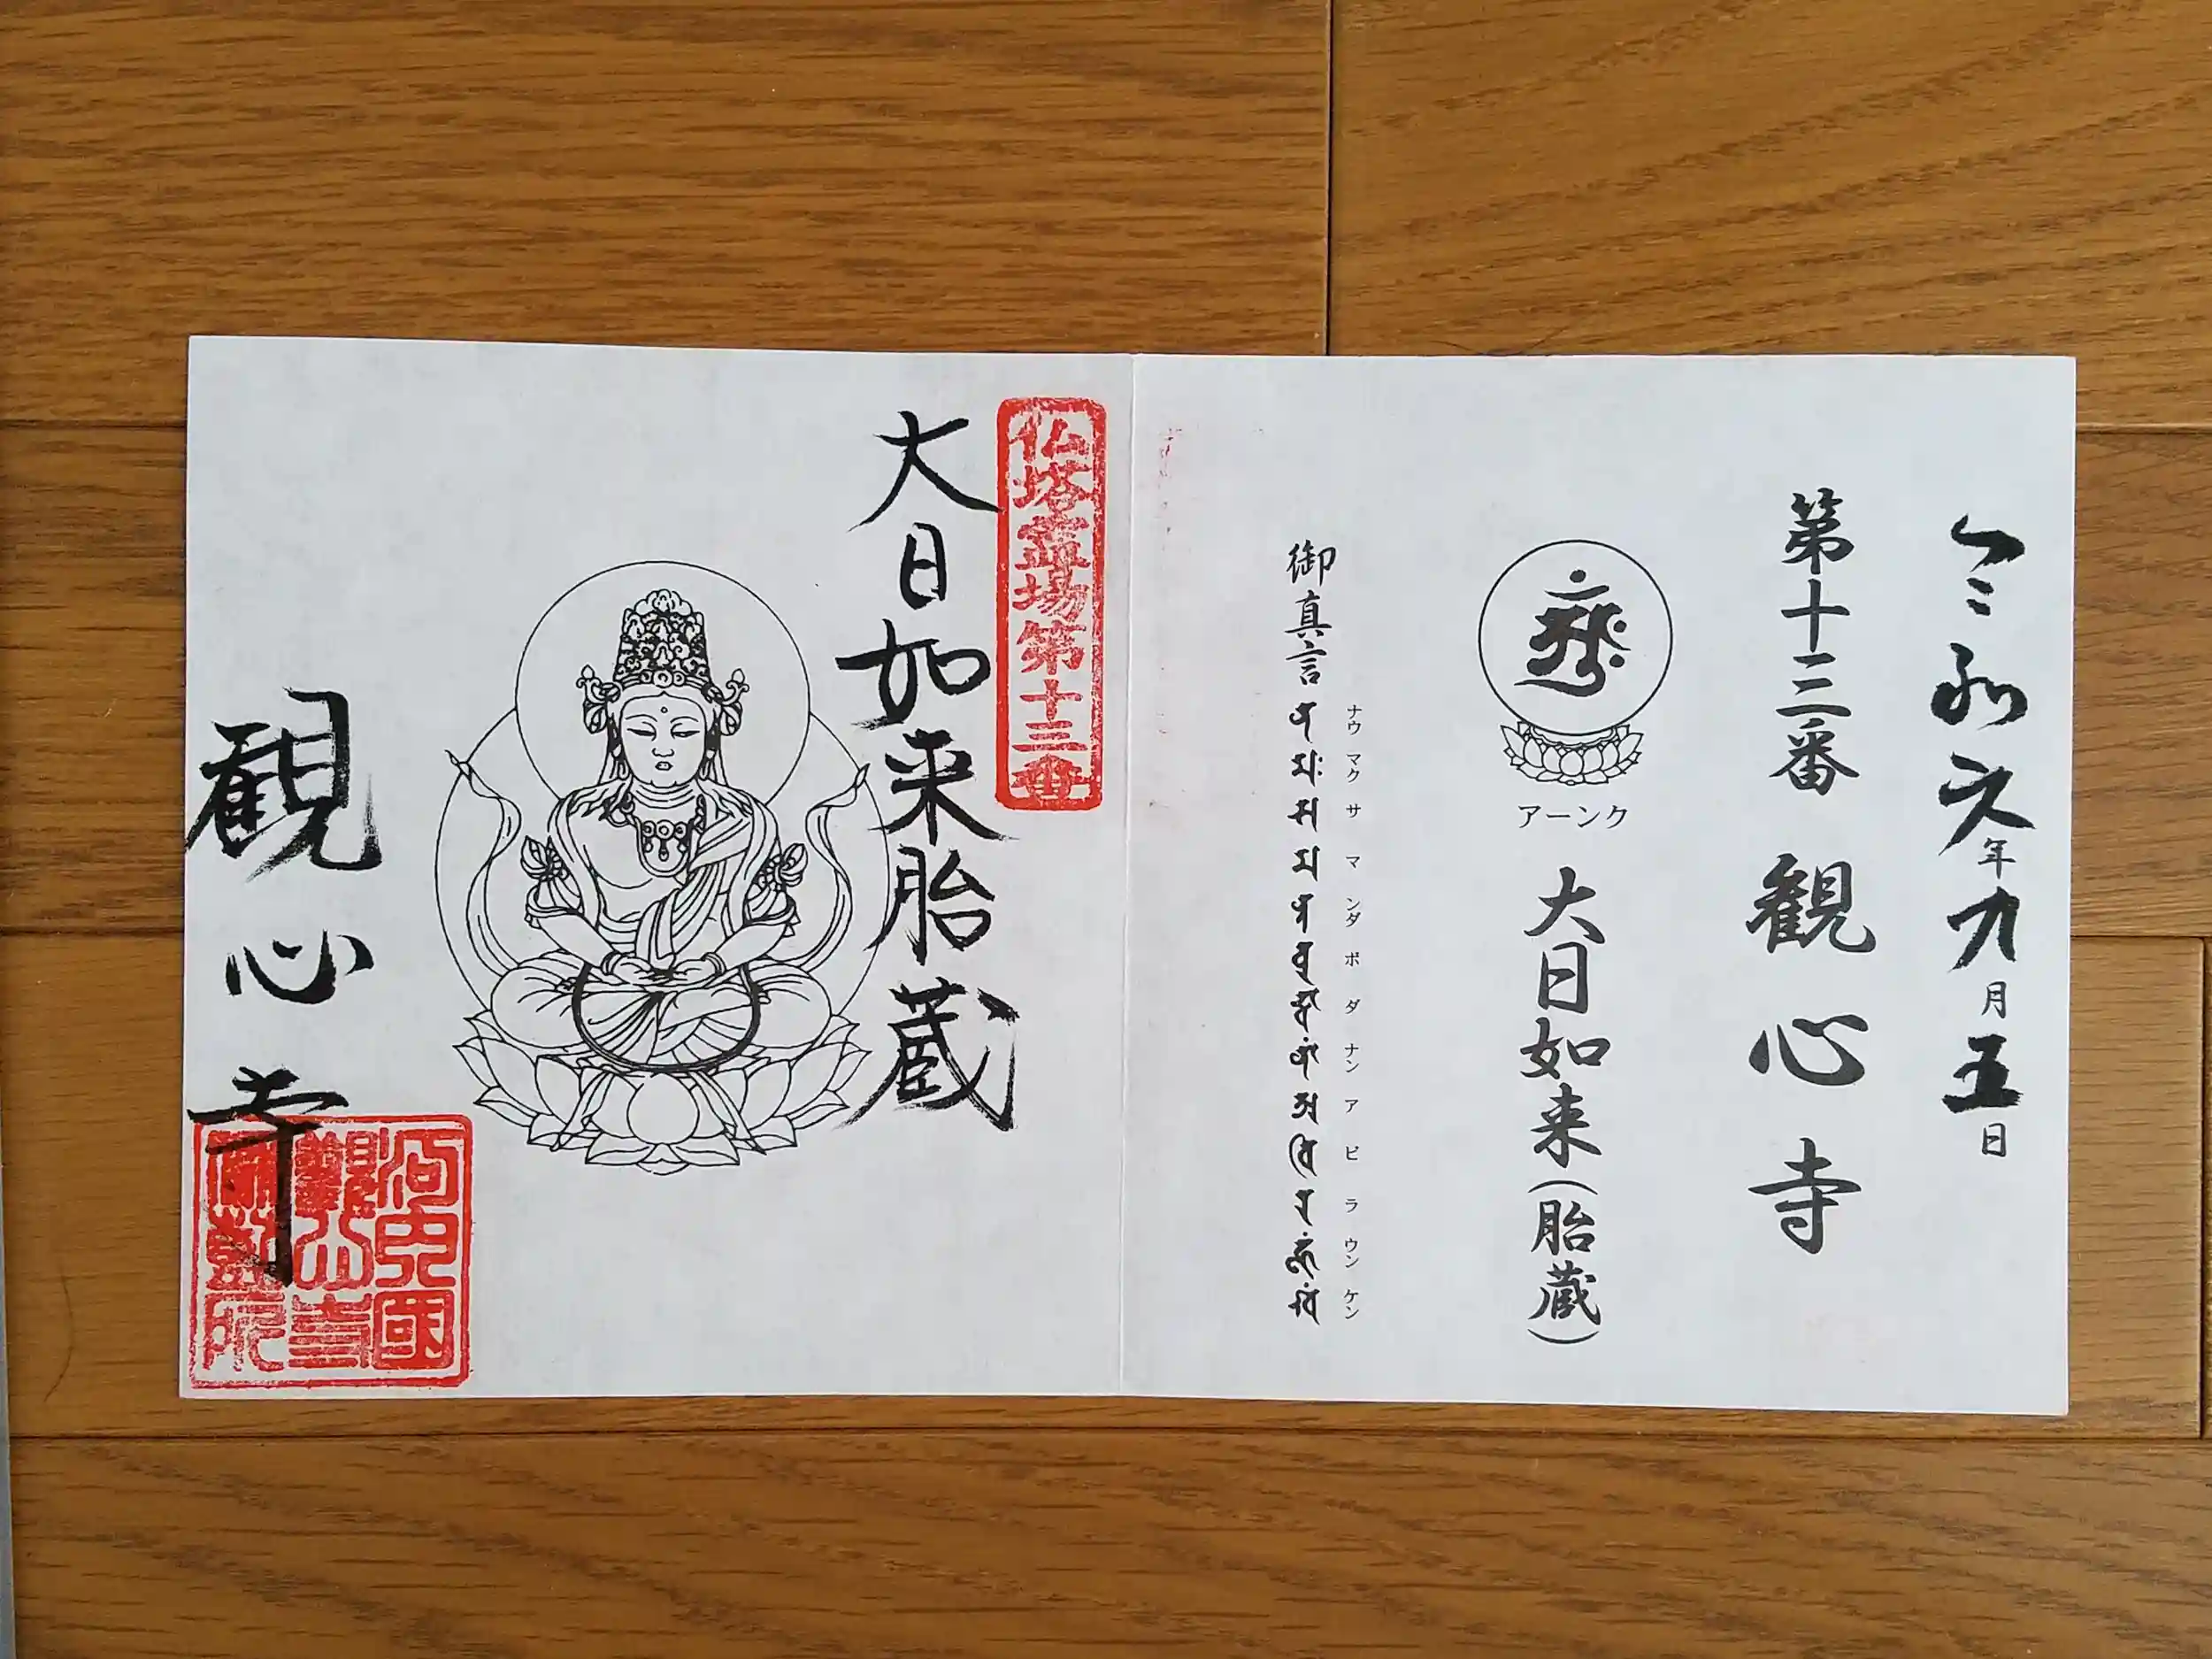 令和元年九月五日
第十三番 観心寺
アーンク
大日如来(胎蔵)
ナウマクサマンダボダナンアビラウンケン
御真言
仏塔霊場第十三番
大日如来胎蔵
観心寺